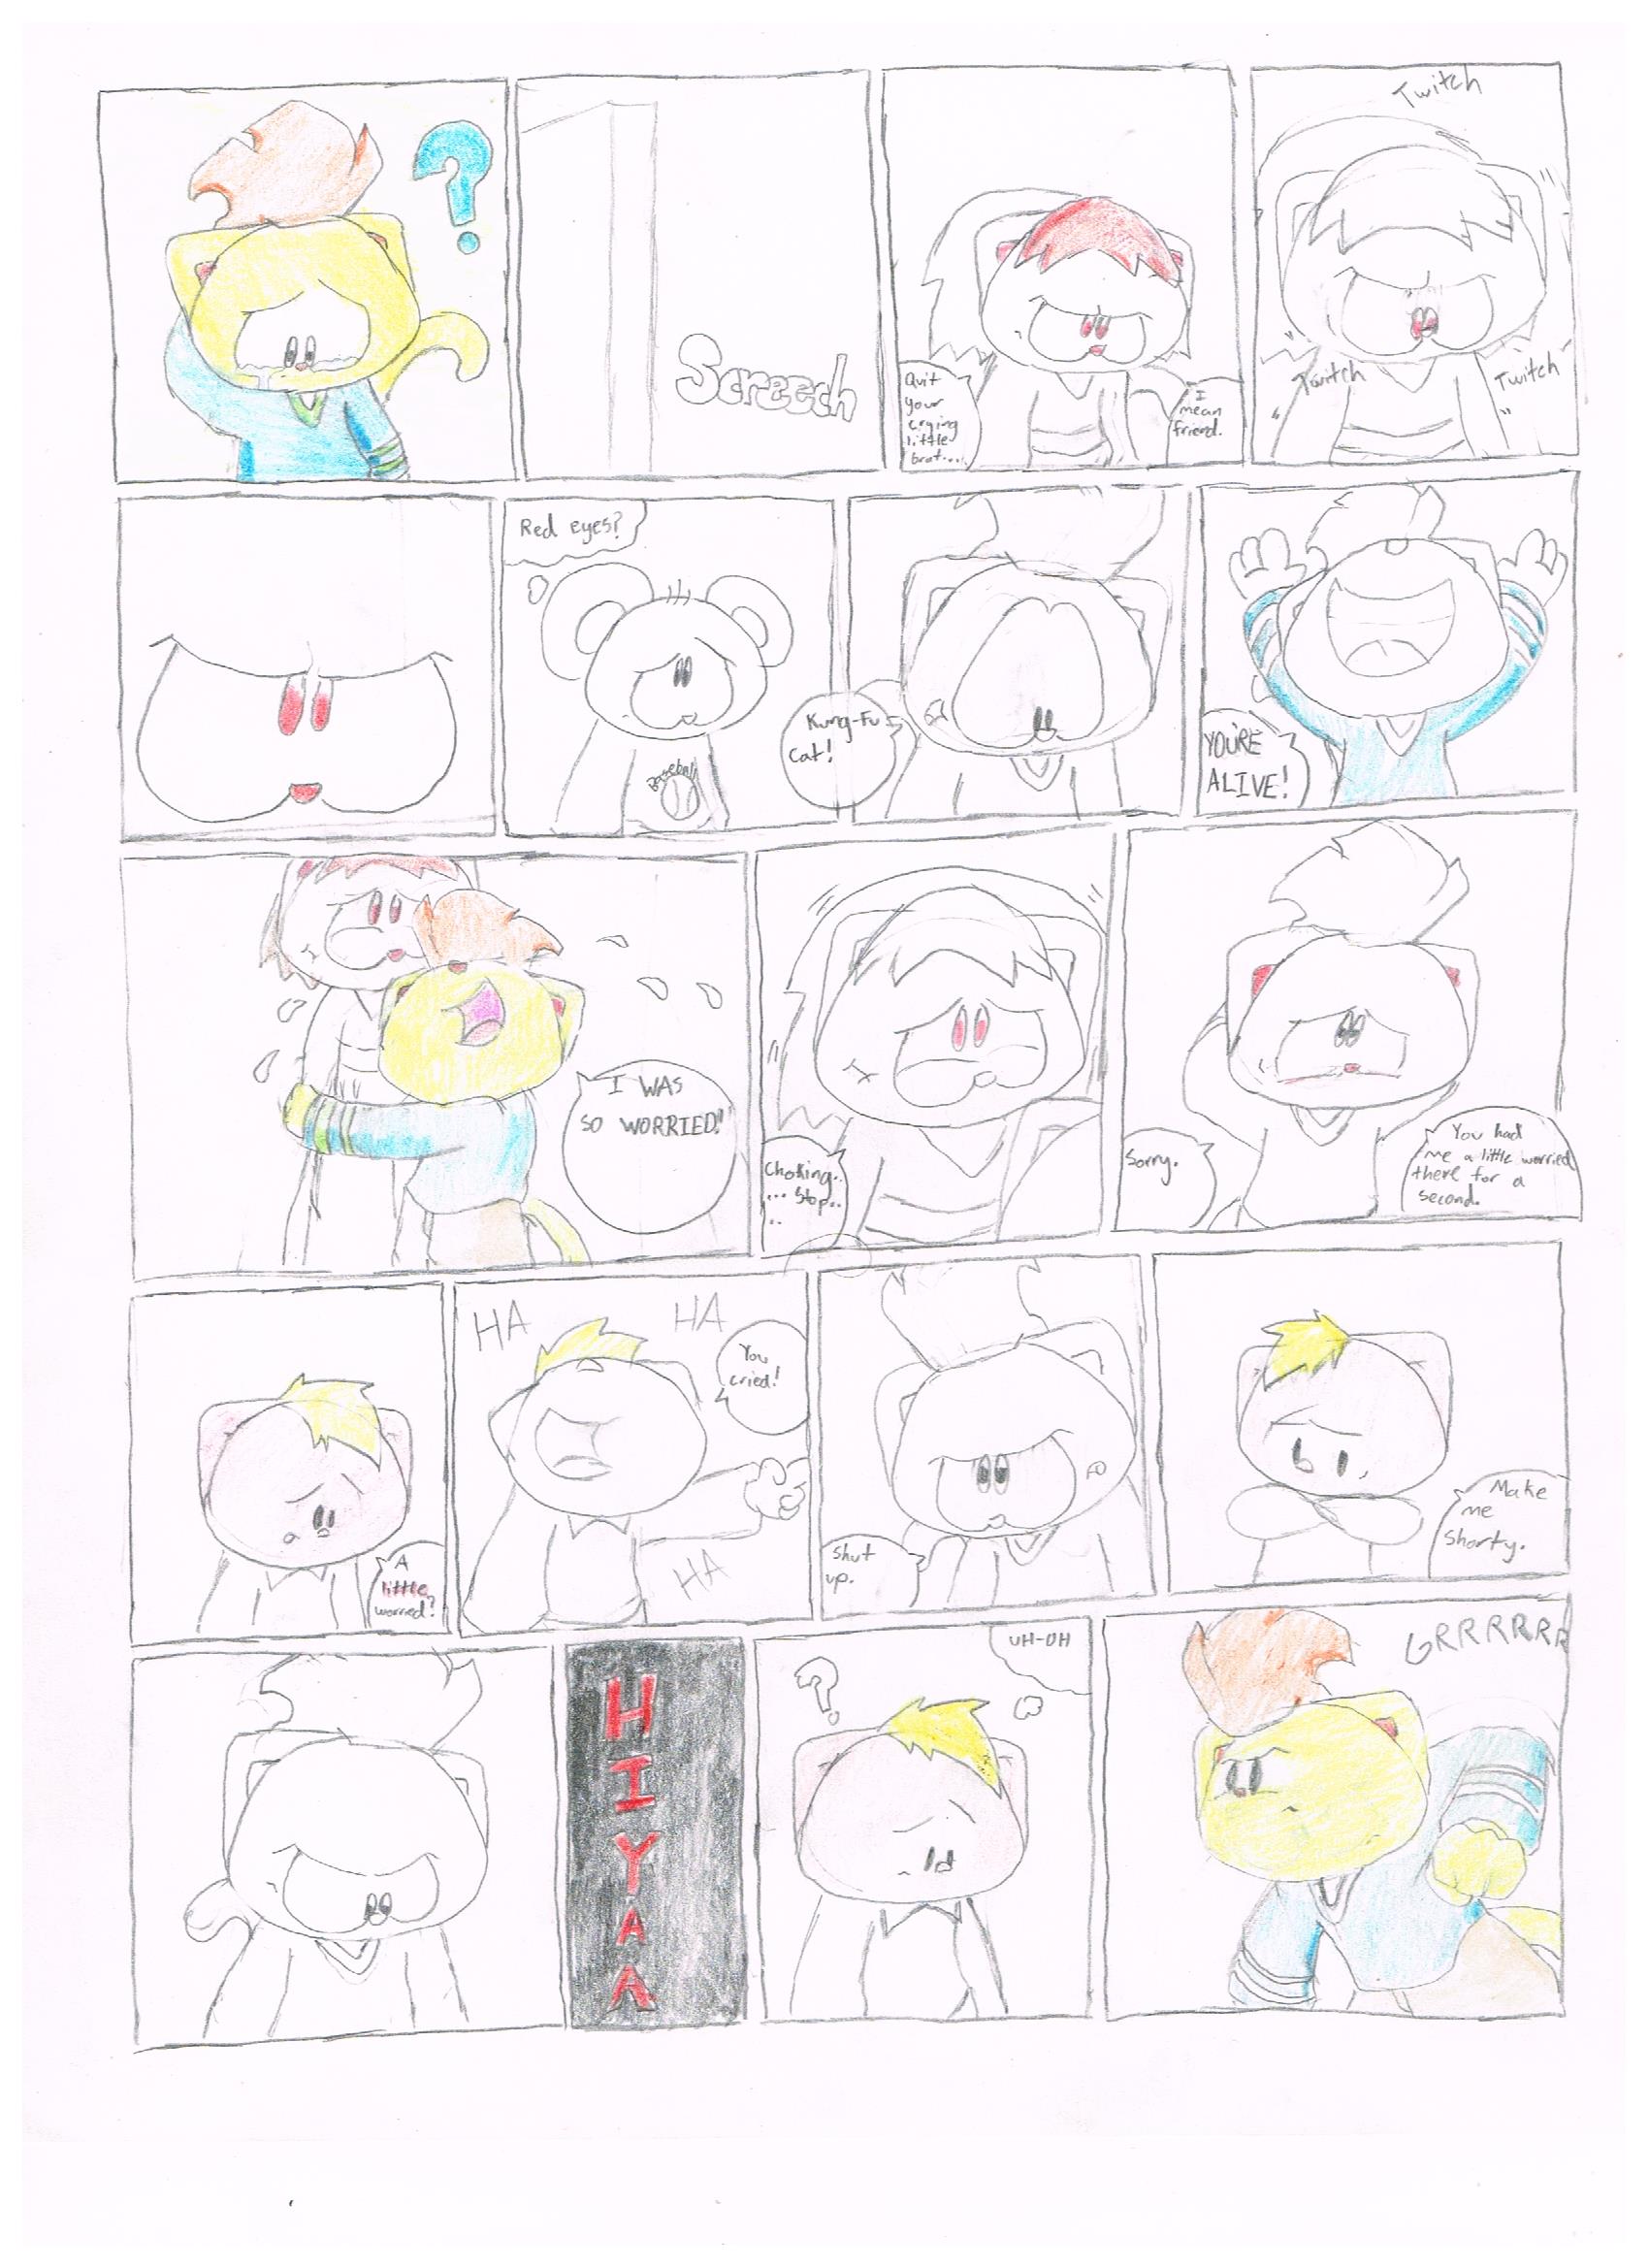 ?
Screech
Quit
your
crying
little
brat....
I
mean
friend.
Twitch
Twitch
Twitch
Red eyes?
Baseball
Kung-Fu
Cat!
YOU'RE
ALIVE!
I WAS
SO WORRIED!!
Choking..
... stop..
..
Sorry.
You had
me a little worried
there for a
second.
A
little
worried?
HA
HA
You
cried!
HA
Shut
up.
Make
me
shorty.
HIYAA
?
UH-OH
GRRRRRR